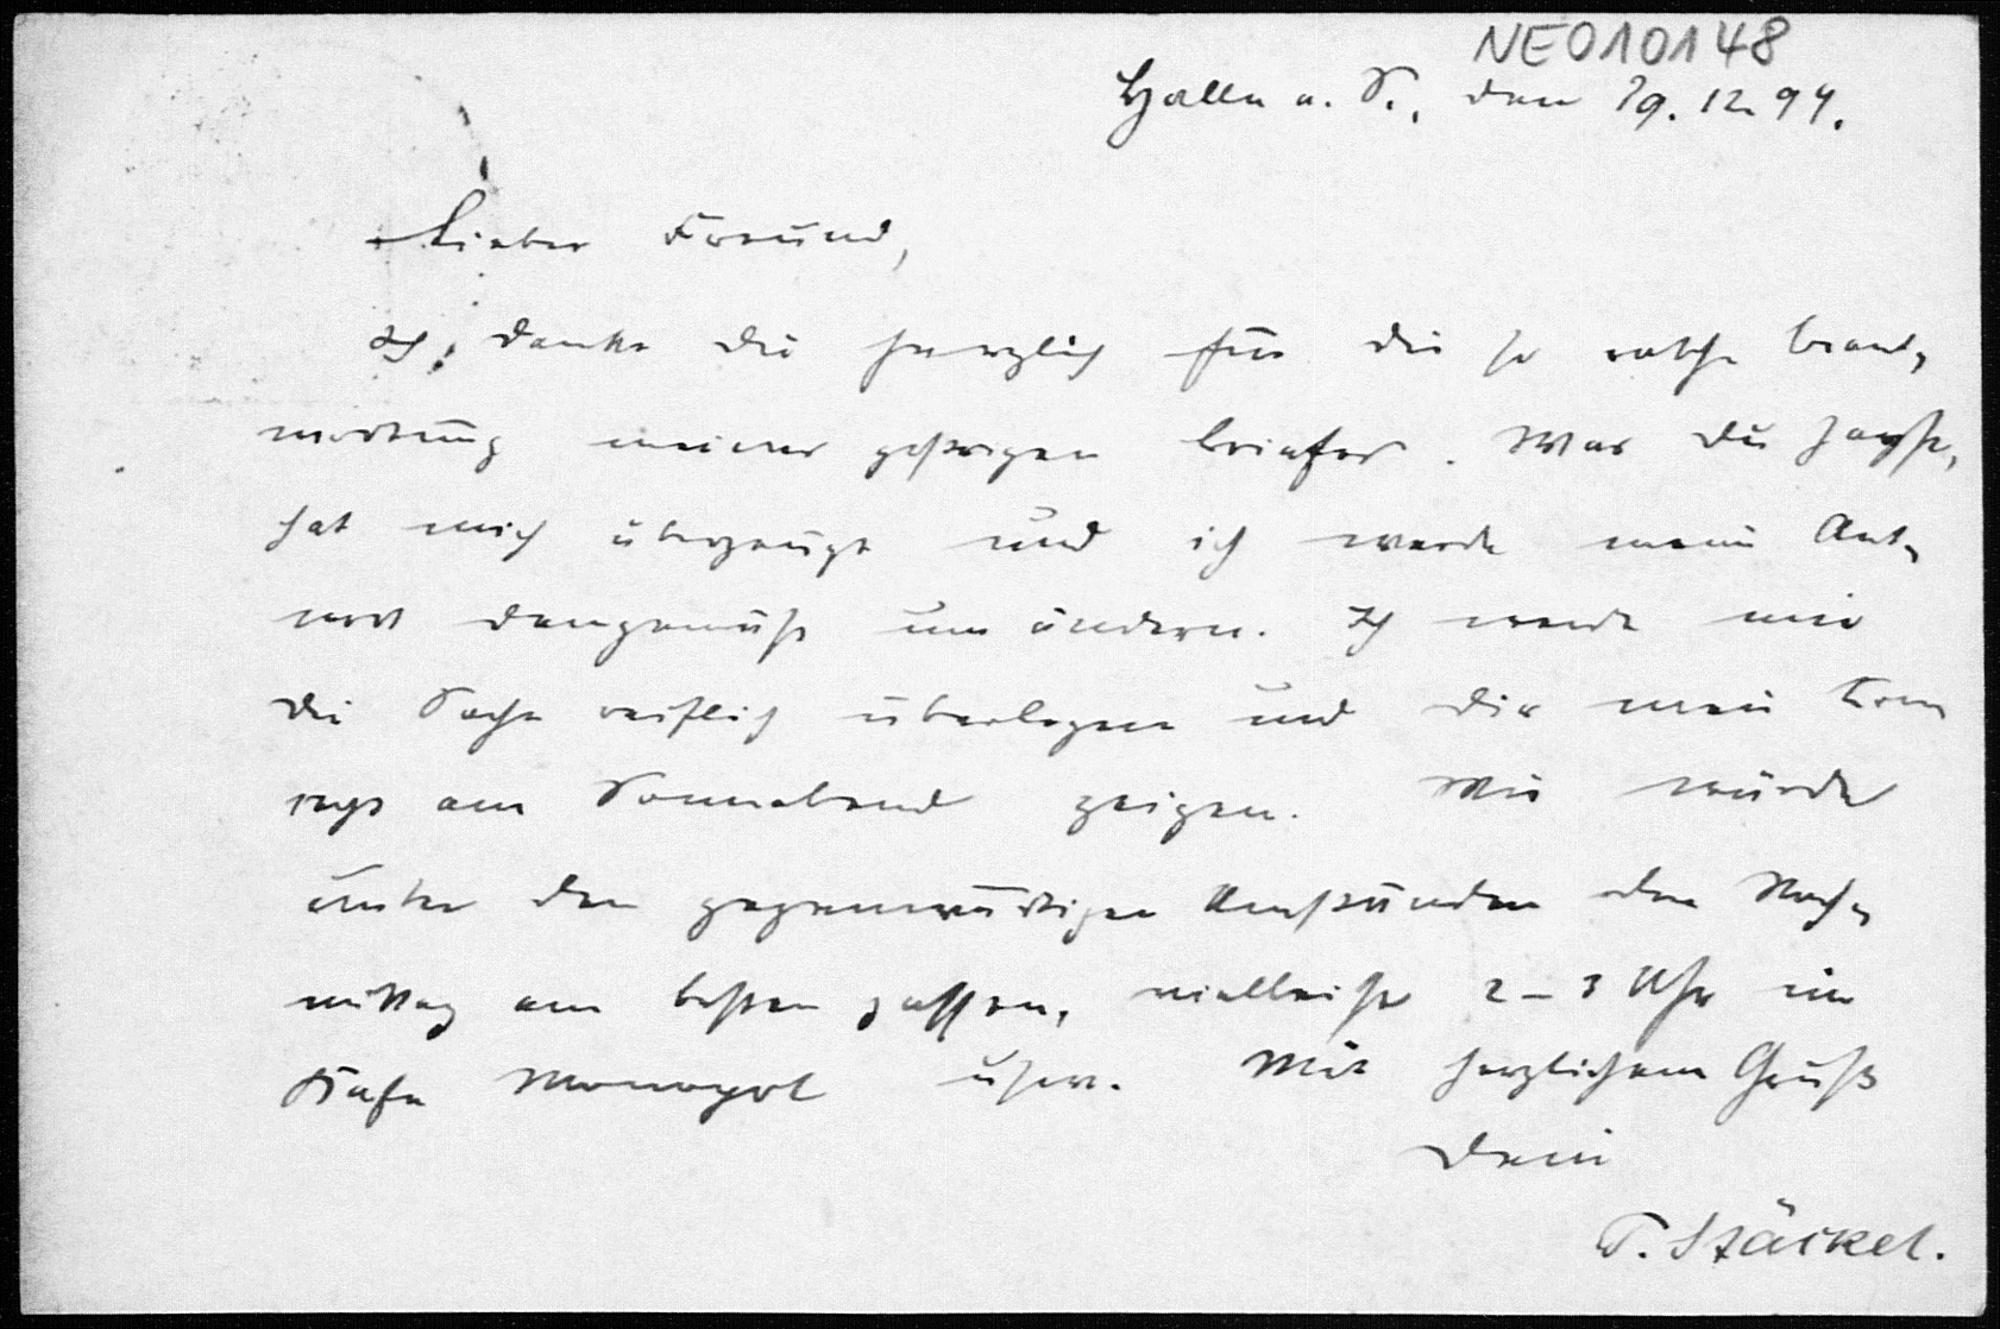 NE010148
Halle a. S., den 19. 12. 94.
Lieber Freund,
Ich danke Dir herzlich für die so rasche Beant-
wortung meines gestrigen Briefes. Was Du sagst,
hat mich überzeugt und ich werde meine Ant-
wort demgemäß um ändern. Ich werde mir
die Sache reiflich überlegen und Dir mein
am Sonnabend zeigen. Mir würde
unter den gegenwärtigen Umständen der Nach-
mittag am besten passen, vielleicht 2 – 3 Uhr im
Kafe Monopol usw. Mit herzlichem Gruß
Dein
P. Stäckel.